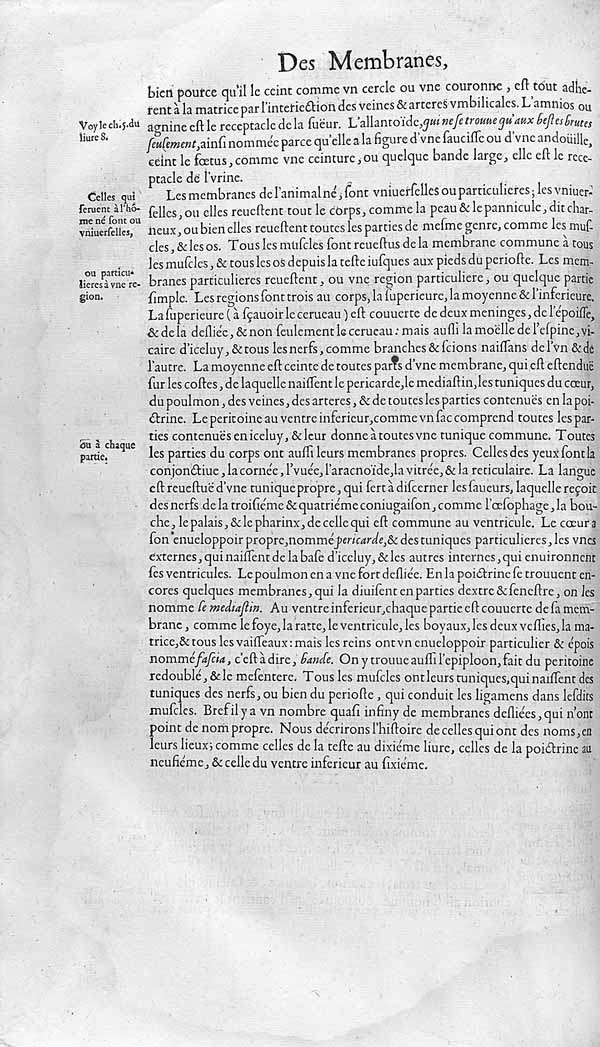 Des Membranes,
bien pource qu'il le ceint comme vn cercle ou vne couronne, eſt tout adhe-
rent à la matrice par l'interiection des veines & arteres vmbilicales. L'amnios ou
Voy le ch. 5. du
liure 8.
agnine eſt le receptacle de la ſueur. L'allantoïde, qui ne ſe trouue qu'aux beſtes brutes
ſeulement, ainſi nommée parce qu'elle a la figure d'vne ſauciſſe ou d'vne andoüille,
ceint le fœtus, comme vne ceinture, ou quelque bande large, elle eſt le rece-
ptacle de l'vrine.
Celles qui
ſeruent à l'hō-
me né ſont ou
vniuerſelles,
Les membranes de l'animal né, ſont vniuerſelles ou particulieres; les vniuer-
ſelles, ou elles reueſtent tout le corps, comme la peau & le pannicule, dit char-
neux, ou bien elles reueſtent toutes les parties de meſme genre, comme les muſ-
cles, & les os. Tous les muſcles ſont reueſtus de la membrane commune à tous
les muſcles, & tous les os depuis la teſte iuſques aux pieds du perioſte. Les mem-
ou particu-
lieres à vne re-
gion.
branes particulieres reueſtent, ou vne region particuliere, ou quelque partie
ſimple. Les regions ſont trois au corps, la ſuperieure, la moyenne & l'inferieure.
La ſuperieure (à ſçauoir le cerueau) eſt couuerte de deux meninges, de l'époiſſe,
& de la deſliée, & non ſeulement le cerueau: mais auſſi la moëlle de l'eſpine, vi-
caire d'iceluy, & tous les nerfs, comme branches & ſcions naiſſans de l'vn & de
l'autre. La moyenne eſt ceinte de toutes parts d'vne membrane, qui eſt eſtenduë
ſur les coſtes, de laquelle naiſſent le pericarde, le mediaſtin, les tuniques du cœur,
du poulmon, des veines, des arteres, & de toutes les parties contenuës en la poi-
ctrine. Le peritoine au ventre inferieur, comme vn ſac comprend toutes les par-
ties contenuës en iceluy, & leur donne à toutes vne tunique commune. Toutes
ou à chaque
partie.
les parties du corps ont auſſi leurs membranes propres. Celles des yeux ſont la
conjonctiue, la cornée, l'vuée, l'aracnoïde, la vitrée, & la reticulaire. La langue
eſt reueſtuë d'vne tunique propre, qui ſert à diſcerner les ſaueurs, laquelle reçoit
des nerfs de la troiſiéme & quatriéme coniugaiſon, comme l'œſophage, la bou-
che, le palais, & le pharinx, de celle qui eſt commune au ventricule. Le cœur a
ſon enueloppoir propre, nommé pericarde, & des tuniques particulieres, les vnes
externes, qui naiſſent de la baſe d'iceluy, & les autres internes, qui enuironnent
ſes ventricules. Le poulmon en a vne fort deſliée. En la poictrine ſe trouuent en-
cores quelques membranes, qui la diuiſent en parties dextre & ſeneſtre, on les
nomme le mediaſtin. Au ventre inferieur, chaque partie eſt couuerte de ſa mem-
brane, comme le foye, la ratte, le ventricule, les boyaux, les deux veſſies, la ma-
trice, & tous les vaiſſeaux: mais les reins ont vn enueloppoir particulier & épois
nommé faſcia, c'eſt à dire, bande. On y trouue auſſi l'epiploon, fait du peritoine
redoublé, & le meſentere. Tous les muſcles ont leurs tuniques, qui naiſſent des
tuniques des nerfs, ou bien du perioſte, qui conduit les ligamens dans leſdits
muſcles. Bref il y a vn nombre quaſi infiny de membranes deſliées, qui n'ont
point de nom propre. Nous décrirons l'hiſtoire de celles qui ont des noms, en
leurs lieux; comme celles de la teſte au dixiéme liure, celles de la poictrine au
neufiéme, & celle du ventre inferieur au ſixiéme.